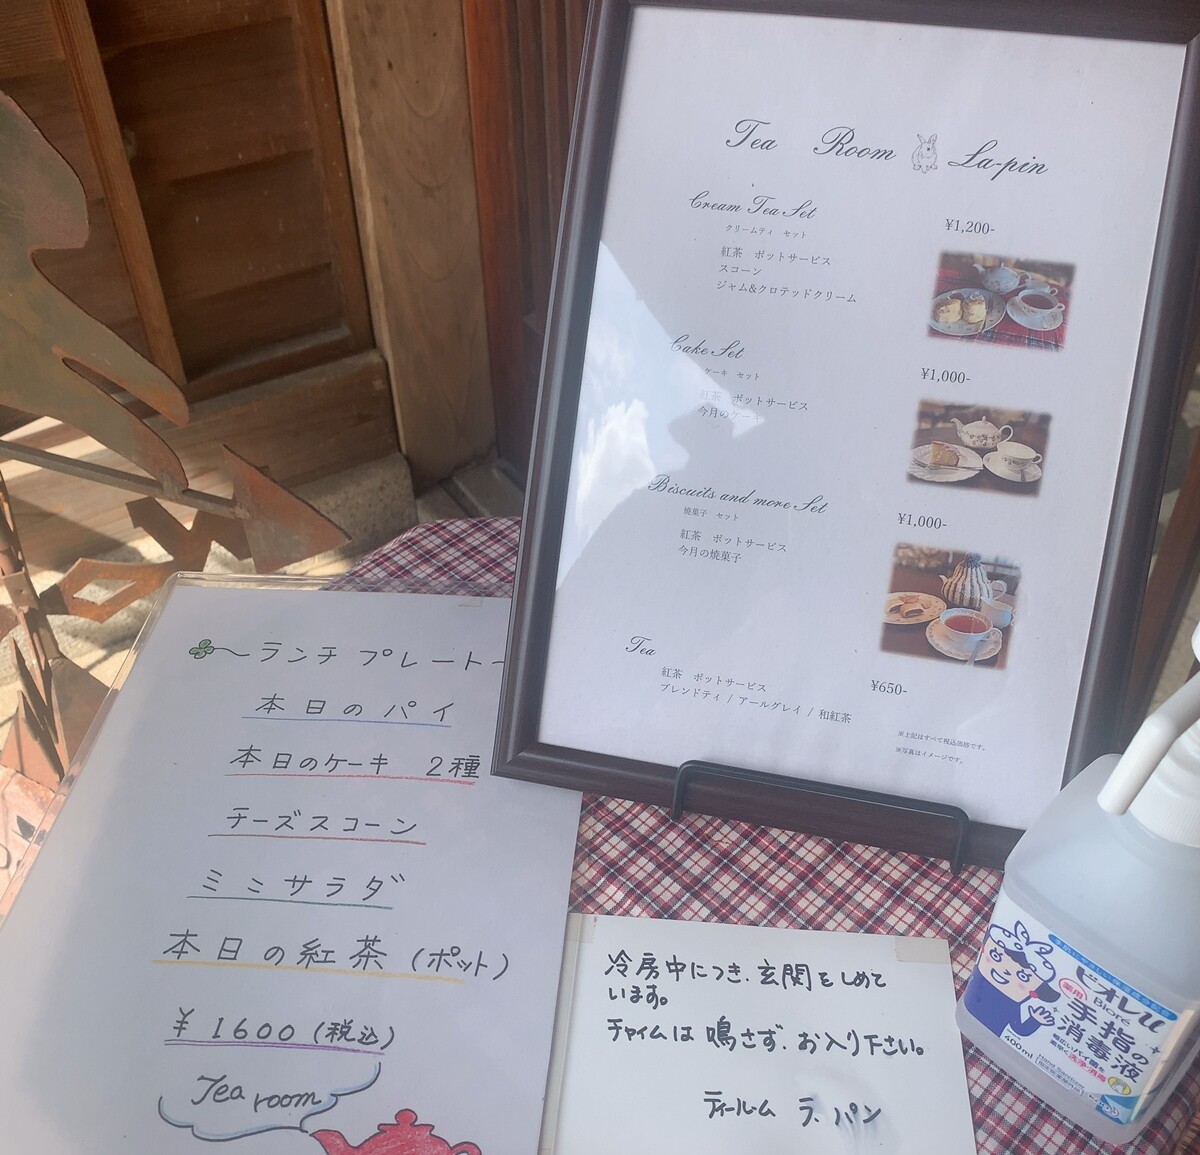 Tea Room La-pin
Cream Tea Set
¥1,200-
クリームティ セット
紅茶 ポットサービス
スコーン
ジャム&クロテッドクリーム
Cake Set
¥1,000-
ケーキ セット
紅茶 ポットサービス
今月のケーキ
Biscuits and more Set
¥1,000-
焼菓子 セット
紅茶 ポットサービス
今月の焼菓子
Tea
¥650-
紅茶 ポットサービス
ブレンドティ / アールグレイ / 和紅茶
※上記はすべて税込価格です。
※写真はイメージです。
ランチ プレート
本日のパイ
本日のケーキ 2種
チーズスコーン
ミニサラダ
本日の紅茶 (ポット)
¥1600(税込)
Tea room
冷房中につき、玄関をしめて
います。
チャイムは鳴さず、お入り下さい。
ティールーム ラ・パン
ビオレu
Bioré
薬用
手指の
消毒液
400ml